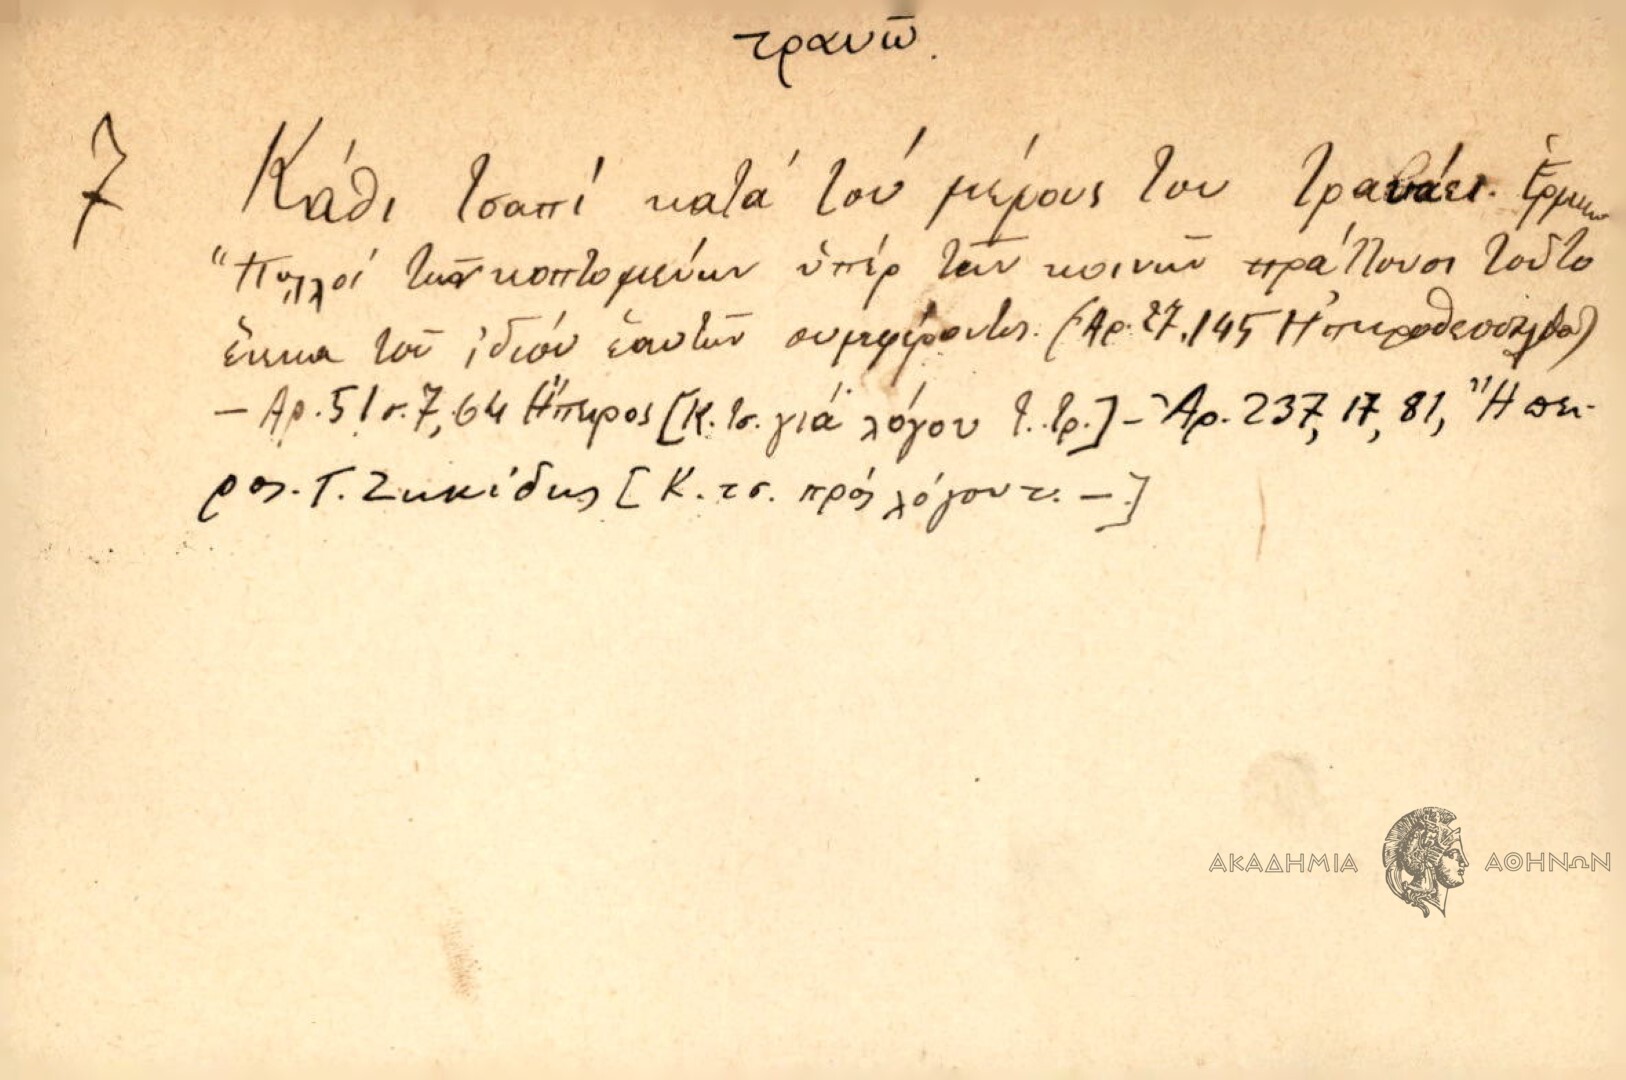 τρανῶ.
7 Κάθι τσαπί κατά τού μέρους του τρανάει. Ἑρμην
"Πολλοί τῶν κοπτομένων ὑπέρ τῶν κοινῶν πράττουσι τοῦτο
ἕνεκα τοῦ ἰδίου ἑαυτῶν συμφέροντος. (Ἀρ. 27.145 Ἠπειροθεσσαλία)
– Ἀρ. 51 σ. 7, 64 Ἤπειρος [Κ. τσ. γιά λόγου τ. τρ.] – Ἀρ. 237, 17, 81, Ἤπει-
ρος. Γ. Ζηκίδης [Κ. τσ. πρός λόγου τ. –.]
ΑΚΑΔΗΜΙΑ ΑΘΗΝΩΝ